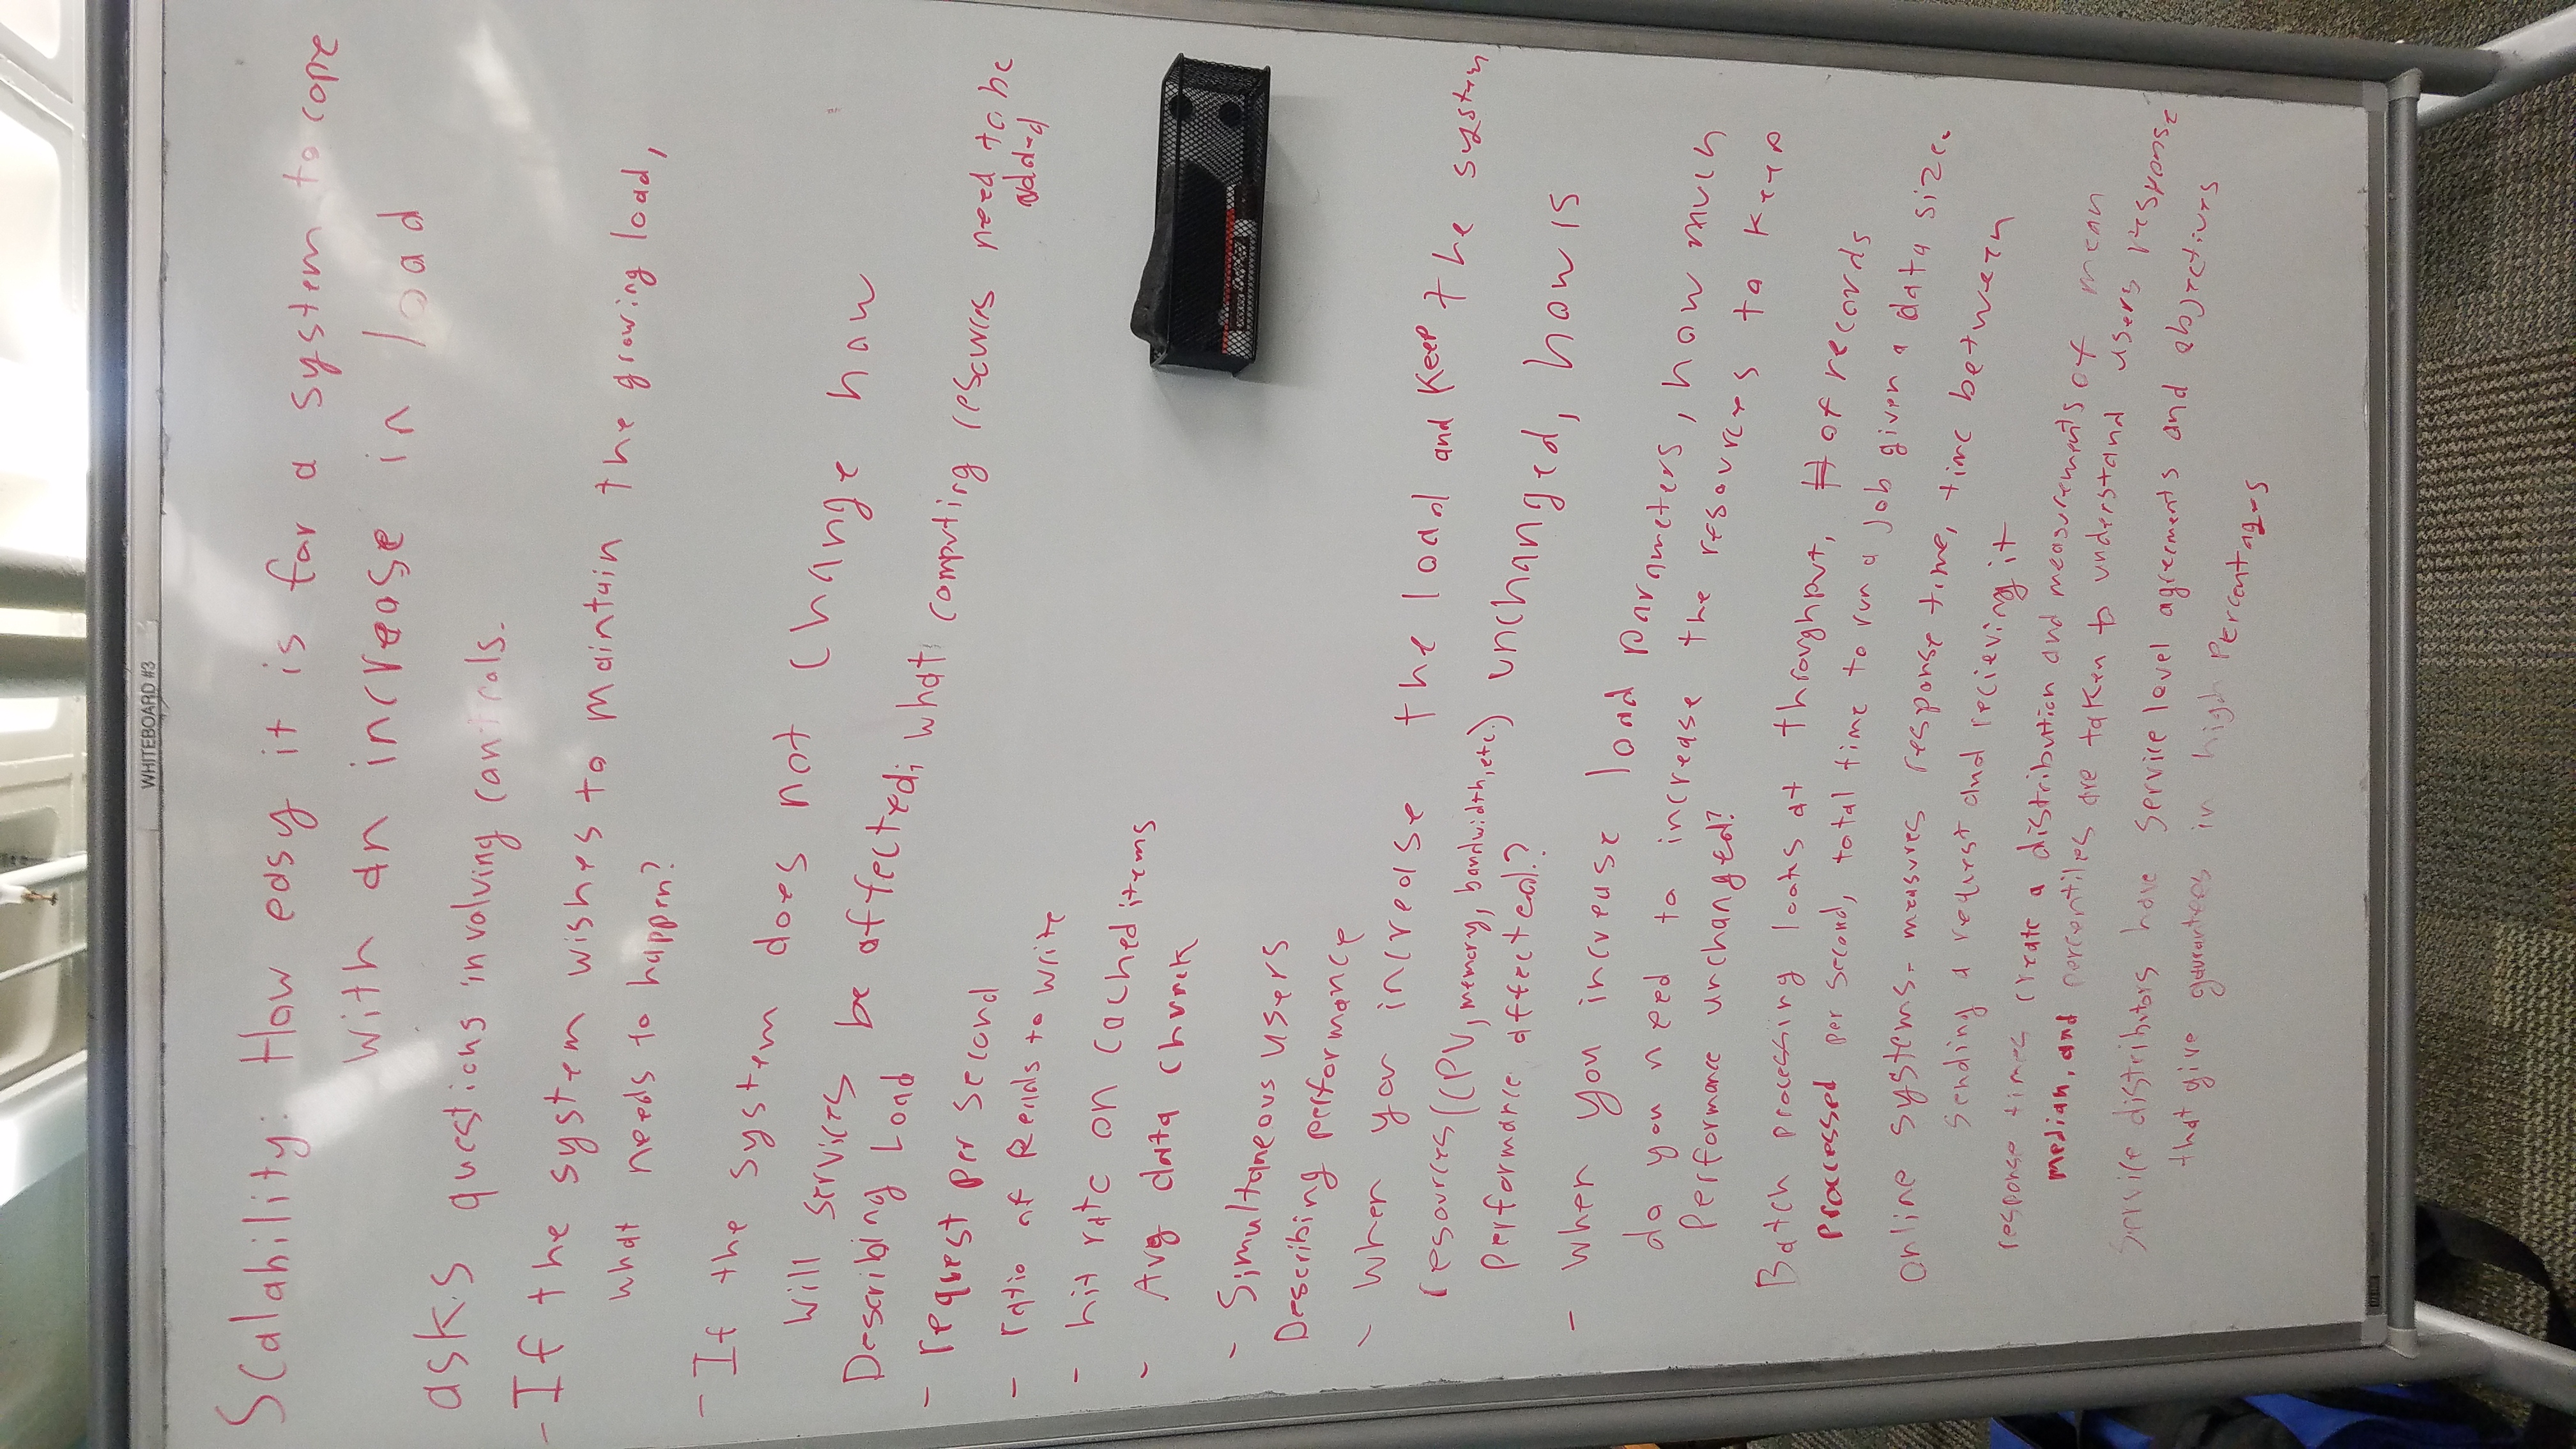 WHITEBOARD #3
Scalability: How easy it is for a system to cope
with an increase in load
asks questions involving controls.
- If the system wishes to maintain the growing load,
what needs to happen?
- If the system does not change how
will services be affected; what computing resources need to be
added
Describing Load
- request per second
- ratio of Reads to write
- hit rate on cached items
- Avg data chunk
- Simultaneous users
Describing performance
- When you increase the load and keep the system
resources (CPU, memory, bandwidth, etc.) unchanged, how is
performance affected?
- When you increase load parameters, how much
do you need to increase the resources to keep
Performance unchanged?
Batch processing looks at throughput, # of records
proccessed per second, total time to run a job given a data size.
online systems - measures response time, time between
sending a request and recieving it
response times create a distribution and measurements of mean
median, and percentiles are taken to understand users response
Service distributors have service level agreements and objectives
that give gaurantees in high Percentages
EXPO